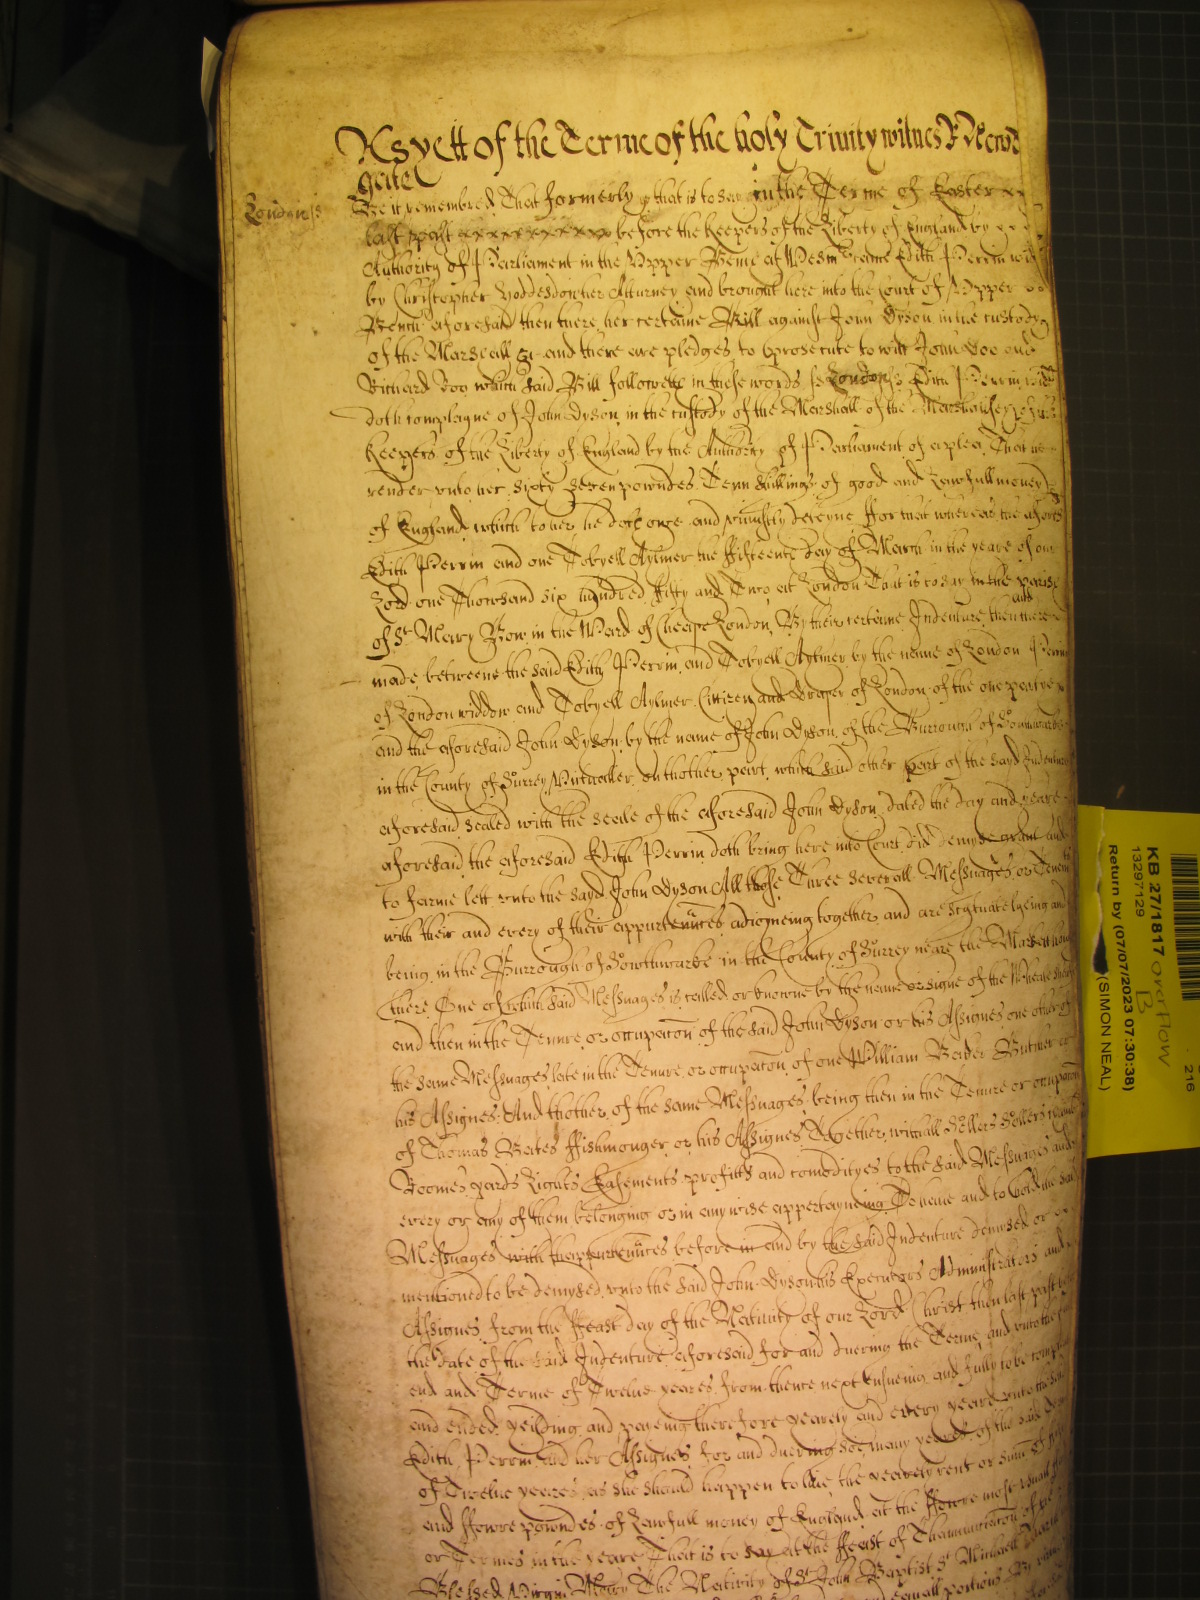 As yett of the Terme of the holy Trinity witnes R Newd
gate
London ss
Be it remembred That formerly that is to say in the Terme of Easter
last past before the Keepers of the Liberty of England by
Authority of Parliament in the Upper Bench at Westm came Edith Perrin wid
by Christopher Hoddesdon her Atturney and brought here into the Court of Upper
Bench aforesaid then there her certaine Bill against John Dyson in the custody
of the Marshall &c and there are pledges to prosecute to witt John Doo and
Richard Roo which said Bill followeth in these words ss London ss Edith Perrin
doth complayne of John Dyson in the custody of the Marshall of the Marshalsey
Keepers of the Liberty of England by the Authority of Parliament of a plea That he
render unto her sixty seven powndes Tenn shillings of good and Lawfull money
of England which to her he doth owe and uniustly deteyne ffor that whereas the aforesd
Edith Perrin and one Tobyell Aylmer the ffifteenth day of March in the yeare of our
Lord one Thowsand six hundred fifty and Two at London That is to say in the parish
of St Mary Bow in the Ward of Cheape London By their certaine Indenture then and there
made betweene the said Edith Perrin and Tobyell Aylmer by the name of London Perrin
of London widdow and Tobyell Aylmer Cittizen and Draper of London of the one partye
and the aforesaid John Dyson by the name of John Dyson of the Burrough of Southwarke
in the County of Surrey Victualler on thother part which said other part of the sayd Indenture
aforesaid sealed with the seale of the aforesaid John Dyson dated the day and yeare
aforesaid the aforesaid Edith Perrin doth bring here into Court did demyse grant and
to farme lett unto the sayd John Dyson All those Three severall Messuages or Tenemts
with their and every of their appurtenances adioyneing together and are scytuate lyeing and
being in the Burrough of Sowthwarke in the County of Surrey neare the Markett house
there One of which said Messuages is called or knowne by the name or signe of the Wheate sheafe
and then in the Tenure or occupacon of the said John Dyson or his Assignes one other of
the same Messuages late in the Tenure or occupacon of one William Butcher or
his Assignes And thother of the same Messuages being then in the Tenure or occupacon
of Thomas Bates ffishmonger or his Assignes Together withall Sellers Sollers
Roomes yards Lights Easements profitts and comodityes to the said Messuages and
every or any of them belonging or in any wise apperteyneing To have and to hold the said
Messuages with thappurtenances before in and by the said Indenture demysed or
mentioned to be demysed unto the said John Dyson his Executors Administrators and
Assignes from the ffeast day of the Nativity of our Lord Christ then last past
the date of the said Indenture aforesaid for and dureing the Terme and unto the full
end and Terme of Twelve yeares from thence next ensueing and fully to be compleate
and ended yeilding and payeing therefore yearely and every yeare unto the said
Edith Perrin and her Assignes for and dureing soe many yeares of the said Terme
of Twelve yeares as she should happen to live the yearely rent or summ of
and ffowre powndes of Lawfull money of England at the ffowre most usuall
or Termes in the yeare That is to say at the ffeast of Thannunciacon of the
Blessed Virgin Mary The Nativity of St John Baptist St Michaell
small portions By
KB 27/1817 overflow
B
13297129
Return by (07/07/2023 07:30:38)
(SIMON NEAL)
216